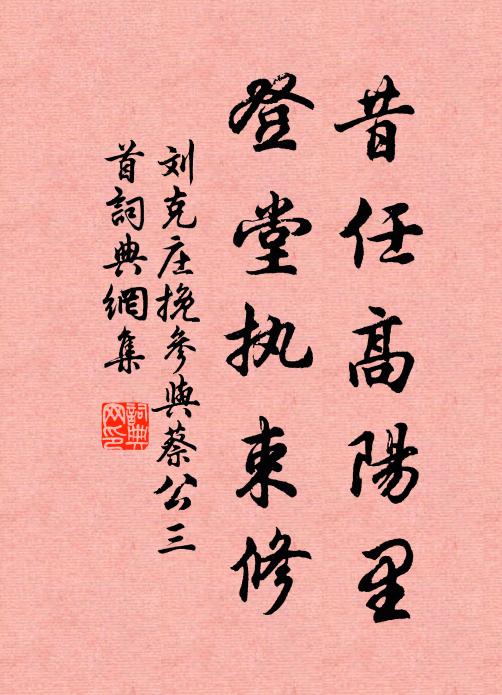 昔任高陽里
登堂执束修
刘克庄挽参與蔡公三
首詞典網集
詞典
网印